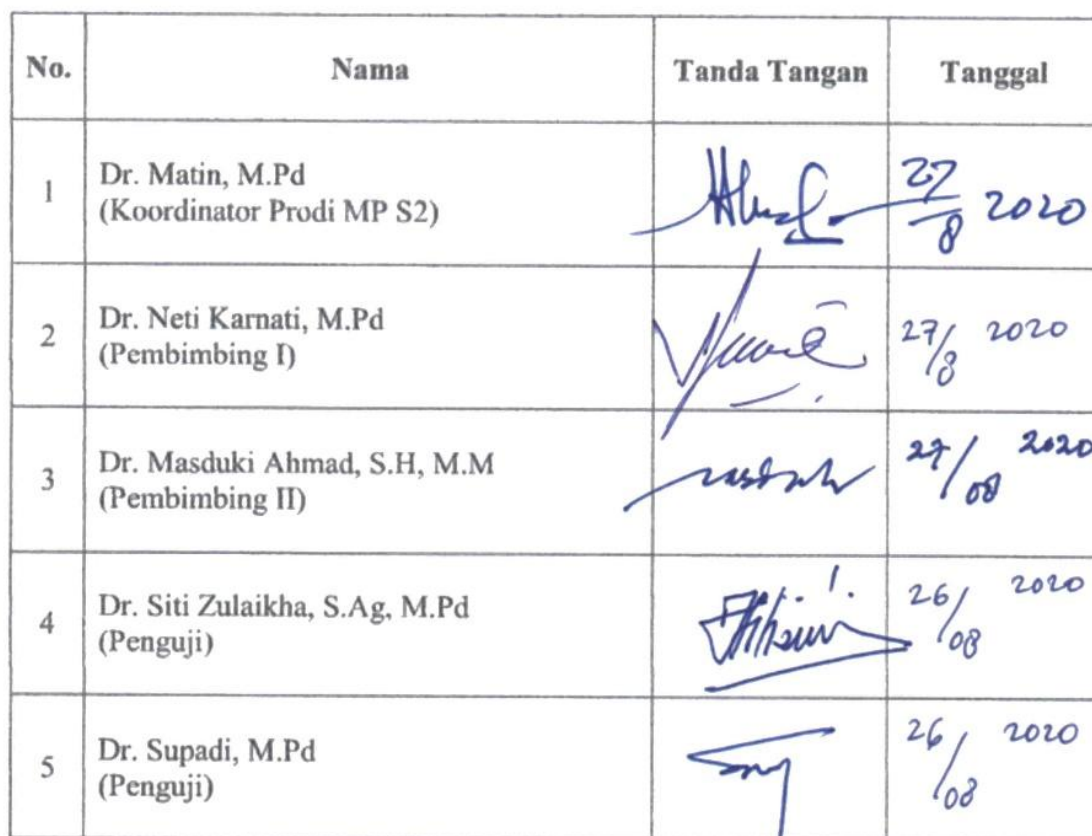 No. Nama Tanda Tangan Tanggal
1 Dr. Matin, M.Pd
(Koordinator Prodi MP S2)
27/8 2020
2 Dr. Neti Karnati, M.Pd
(Pembimbing I)
27/8 2020
3 Dr. Masduki Ahmad, S.H, M.M
(Pembimbing II)
27/08 2020
4 Dr. Siti Zulaikha, S.Ag, M.Pd
(Penguji)
26/08 2020
5 Dr. Supadi, M.Pd
(Penguji)
26/08 2020